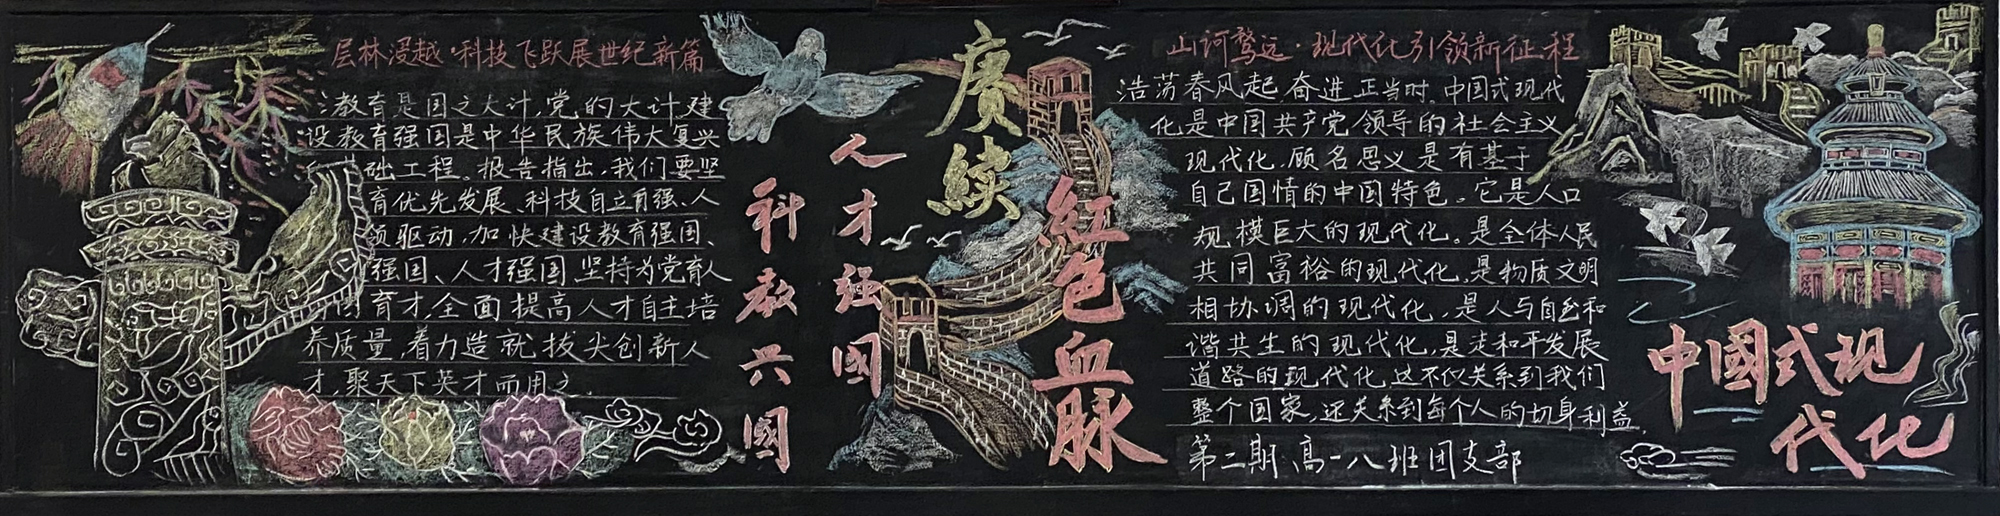 层林漫越·科技飞跃展世纪新篇
教育是国之大计,党的大计,建
设教育强国是中华民族伟大复兴
础工程。报告指出,我们要坚
育优先发展、科技自立自强、人
领驱动,加快建设教育强国、
强国、人才强国坚持为党育人
育才,全面提高人才自主培
养质量,着力造就拔尖创新人
才,聚天下英才而用之.
科教兴國
人才强國
赓續
紅色血脉
山河骛远·现代化引领新征程
浩荡春风起,奋进正当时.中国式现代
化是中国共产党领导的社会主义
现代化,顾名思义是有基于
自己国情的中国特色。它是人口
规模巨大的现代化。是全体人民
共同富裕的现代化,是物质文明
相协调的现代化,是人与自然和
谐共生的现代化,是走和平发展
道路的现代化这不仅关系到我们
整个国家,还关系到每个人的切身利益.
第二期 高一八班团支部
中國式现
代化